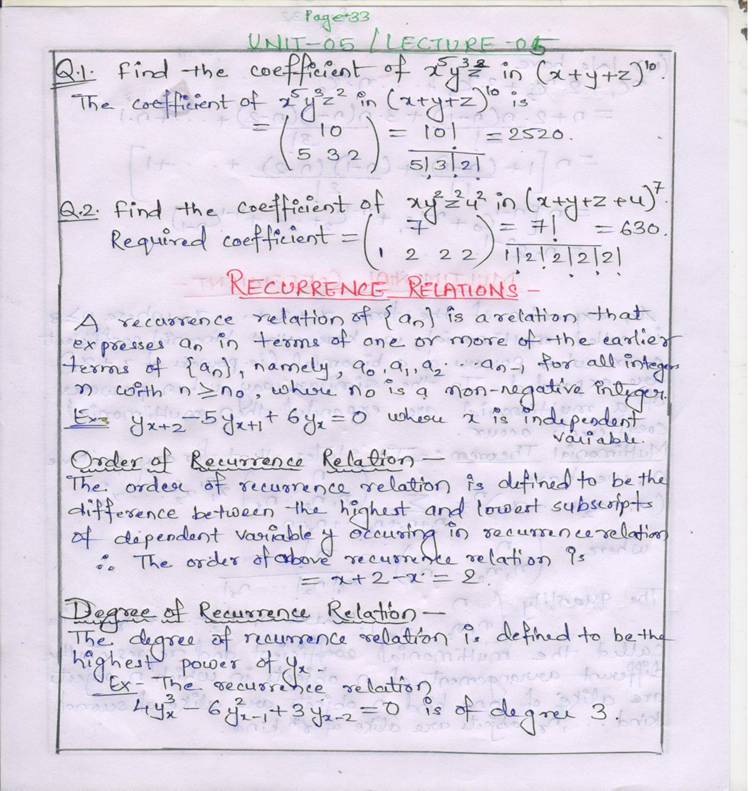 Page-33
UNIT-05 / LECTURE-05
Q.1. Find the coefficient of x⁵y³z² in (x+y+z)¹⁰.
The coefficient of x⁵y³z² in (x+y+z)¹⁰ is
= (10 / 5 3 2) = 10! / 5!3!2! = 2520.
Q.2. Find the coefficient of xy²z²u² in (x+y+z+u)⁷.
Required coefficient = (7 / 1 2 2 2) = 7! / 1!2!2!2!2! = 630.
RECURRENCE RELATIONS -
A recurrence relation of {aₙ} is a relation that
expresses aₙ in terms of one or more of the earlier
terms of {aₙ}, namely, a₀, a₁, a₂ ... aₙ₋₁ for all integers
n with n ≥ n₀, where n₀ is a non-negative integer.
Ex- yₓ₊₂ - 5yₓ₊₁ + 6yₓ = 0 where x is independent
variable.
Order of Recurrence Relation -
The order of recurrence relation is defined to be the
difference between the highest and lowest subscripts
of dependent variable y occuring in recurrence relation
∴ The order of above recurrence relation is
= x+2-x = 2
Degree of Recurrence Relation -
The degree of recurrence relation is defined to be the
highest power of yₓ.
Ex- The recurrence relation
4yₓ³ - 6y²ₓ₋₁ + 3yₓ₋₂ = 0 is of degree 3.